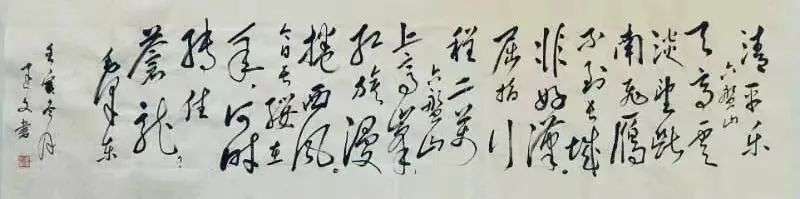 清平乐
六盘山
天高雲
淡望断
南飞雁
不到长城
非好漢
屈指行
程二萬
六盘山
上高峯
红旗漫
捲西风
今日长缨在
手何时
缚住
蒼龙
毛泽东
壬寅冬月
文書